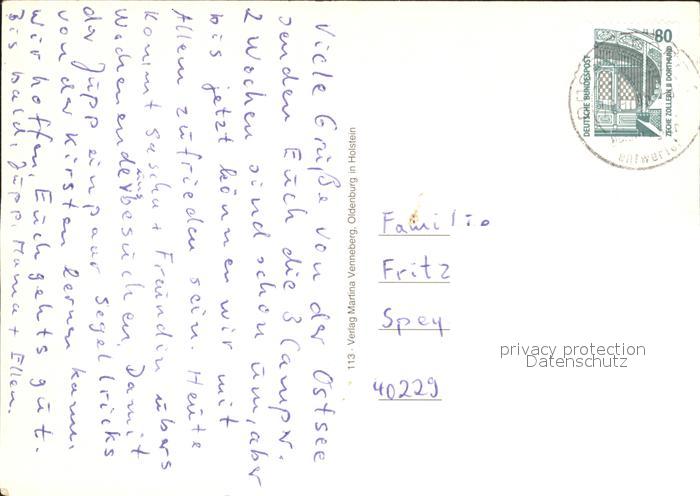 Viele Grüße von der Ostsee
senden Euch die 3 Campr.
2 Wochen sind schon um, aber
bis jetzt können wir mit
Allem zufrieden sein. Heute
kommt Sascha + Freundin übers
Wochenende uns besuchen, Damit
der Jupp ein paar Segeltricks
von der Kirsten lernen kann.
Wir hoffen, Euch gehts gut.
Bis bald, Jupp, Mama + Ellen.
113 · Verlag Martina Venneberg, Oldenburg in Holstein
80
DEUTSCHE BUNDESPOST
ZECHE ZOLLERN II DORTMUND
Familie
Fritz
Spey
40229
privacy protection
Datenschutz